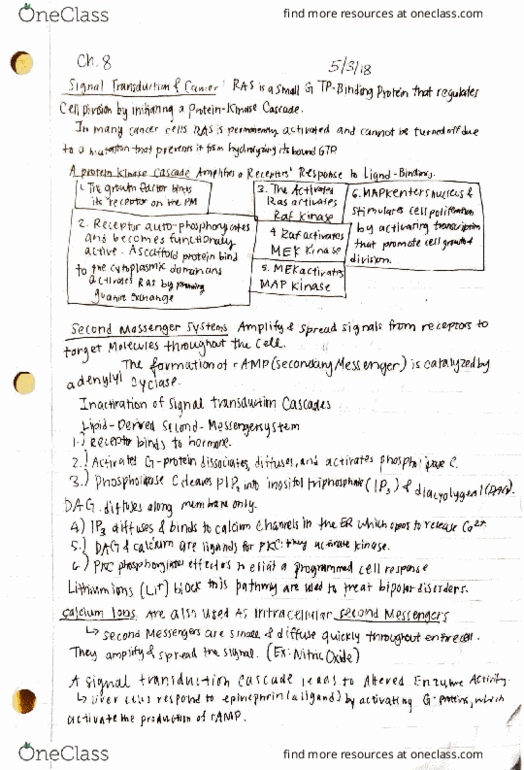 OneClass
find more resources at oneclass.com
Ch. 8
5/3/18
Signal Transduction & Cancer: RAS is a small GTP-Binding Protein that regulates
Cell Division by initiating a Protein-Kinase Cascade.
In many cancer cells RAS is permanently activated and cannot be turned off due
to a mutation that prevents it from hydrolyzing its bound GTP
A protein kinase cascade Amplifies a Receptors' Response to Ligand-Binding.
1. The growth factor binds
its receptor on the PM
2. Receptor auto-phosphorylates
and becomes functionally
active. A scaffold protein bind
to the cytoplasmic domains
activates RAS by
guanine exchange
3. The Activates
Ras activates
Raf kinase
4 Raf activates
MEK Kinase
5. MEK activates
MAP kinase
6. MAPK enters nucleus &
stimulates cell proliferation
by activating transcription
that promote cell growth &
division.
Second Messenger Systems Amplify & spread signals from receptors to
target Molecules throughout the Cell.
The formation of cAMP (secondary Messenger) is catalyzed by
adenylyl cyclase.
Inactivation of Signal transduction Cascades
Lipid-Derived Second-Messenger system
1.) Receptor binds to hormone.
2.) Activated G-protein dissociates, diffuses, and activates phospholipase C.
3.) Phospholipase C cleaves PIP2 into inositol triphosphate (IP3) &
DAG. diffuses along membrane only.
4) IP3 diffuses & binds to calcium channels in the ER which opens to release Ca2+
5.) DAG & calcium are ligands for PKC: they activate kinase.
6) PKC phosphorylates effectors to elicit a programmed cell response
Lithium ions (Li+) block this pathway are used to treat bipolar disorders.
Calcium Ions are also used as intracellular second Messengers
↳ second Messengers are small & diffuse quickly throughout entire cell.
They amplify & spread the signal. (Ex: Nitric Oxide)
A signal transduction cascade leads to Altered Enzyme Activity.
↳ liver cells respond to epinephrin (a ligand) by activating G-proteins, which
activate the production of cAMP.
OneClass
find more resources at oneclass.com